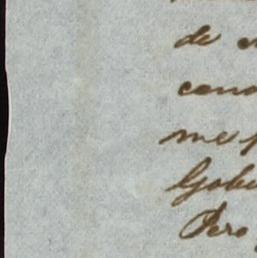 de
cono
mes
Gobe
Pero